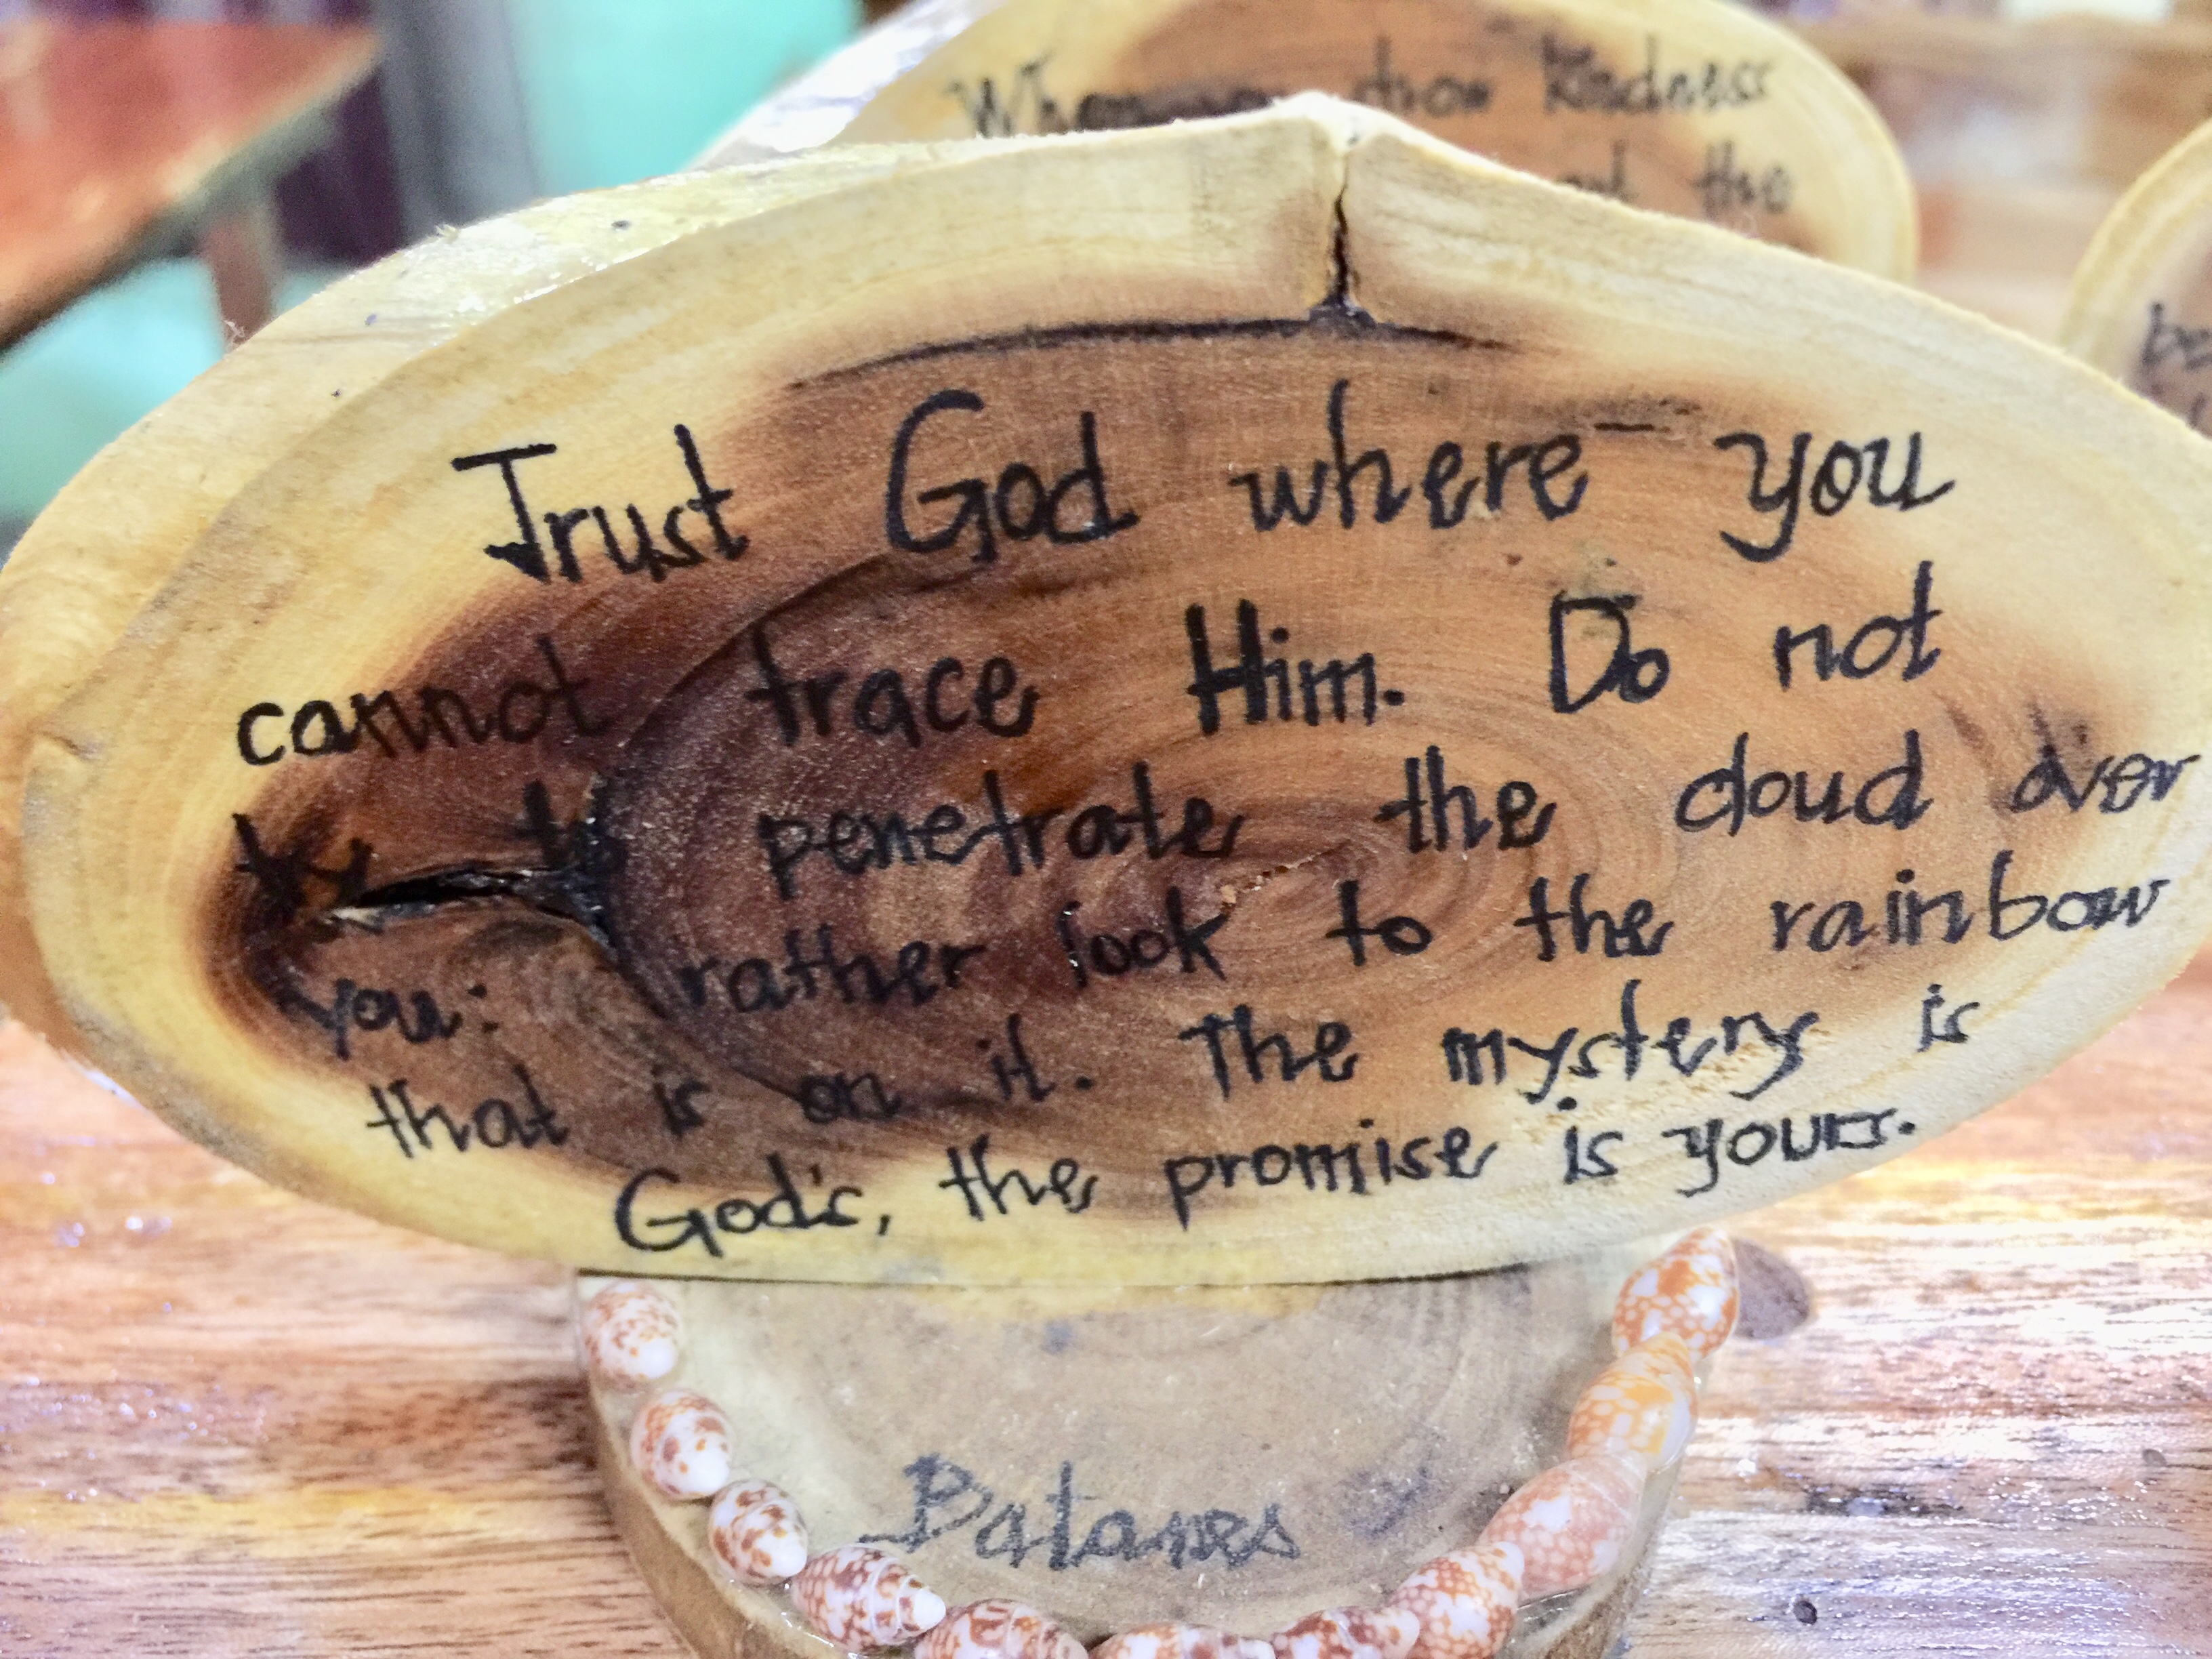 kindness
the
Trust God where you
cannot trace Him. Do not
try to penetrate the cloud over
you: rather look to the rainbow
that is on it. The mystery is
God's, the promise is yours.
Batanes